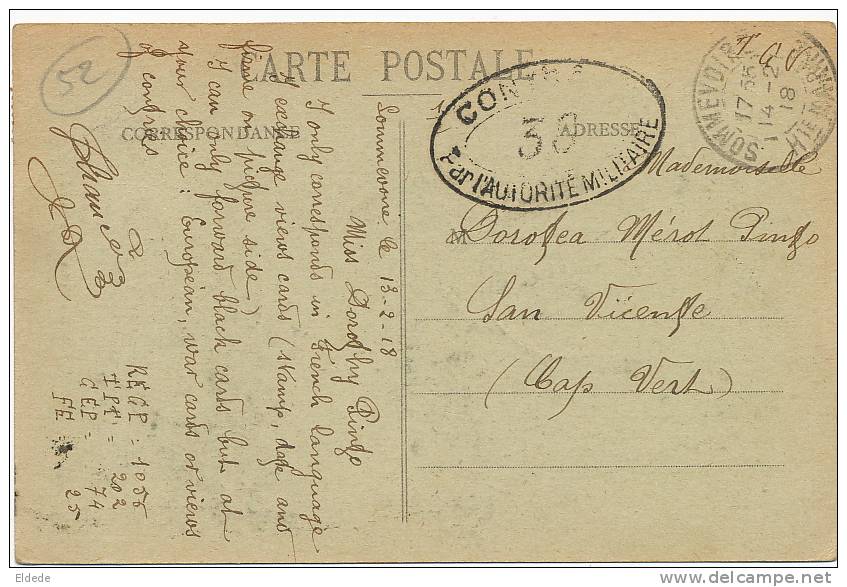 52
CARTE POSTALE
CORRESPONDANCE
ADRESSE
CONTRÔ
53
Par l'AUTORITÉ MILITAIRE
SOMMEVOIRE
17 55
14 - 2
18
HTE MARNE
T C V
Sommevoire le 13-2-18
Miss Dorothy Pinto
I only corresponds in French language
I exchange views cards (stamp, date and
firme on picture side)
I can only forward black cards but at
your choice: European, war cards or views
of congres
RÉGP = 1056
TPT = 202
CEP = 74
FE 25
Mademoiselle
M Dorotea Mérot Pinto
San Vicente
(Cap Vert)
Eldede
www.delcampe.net